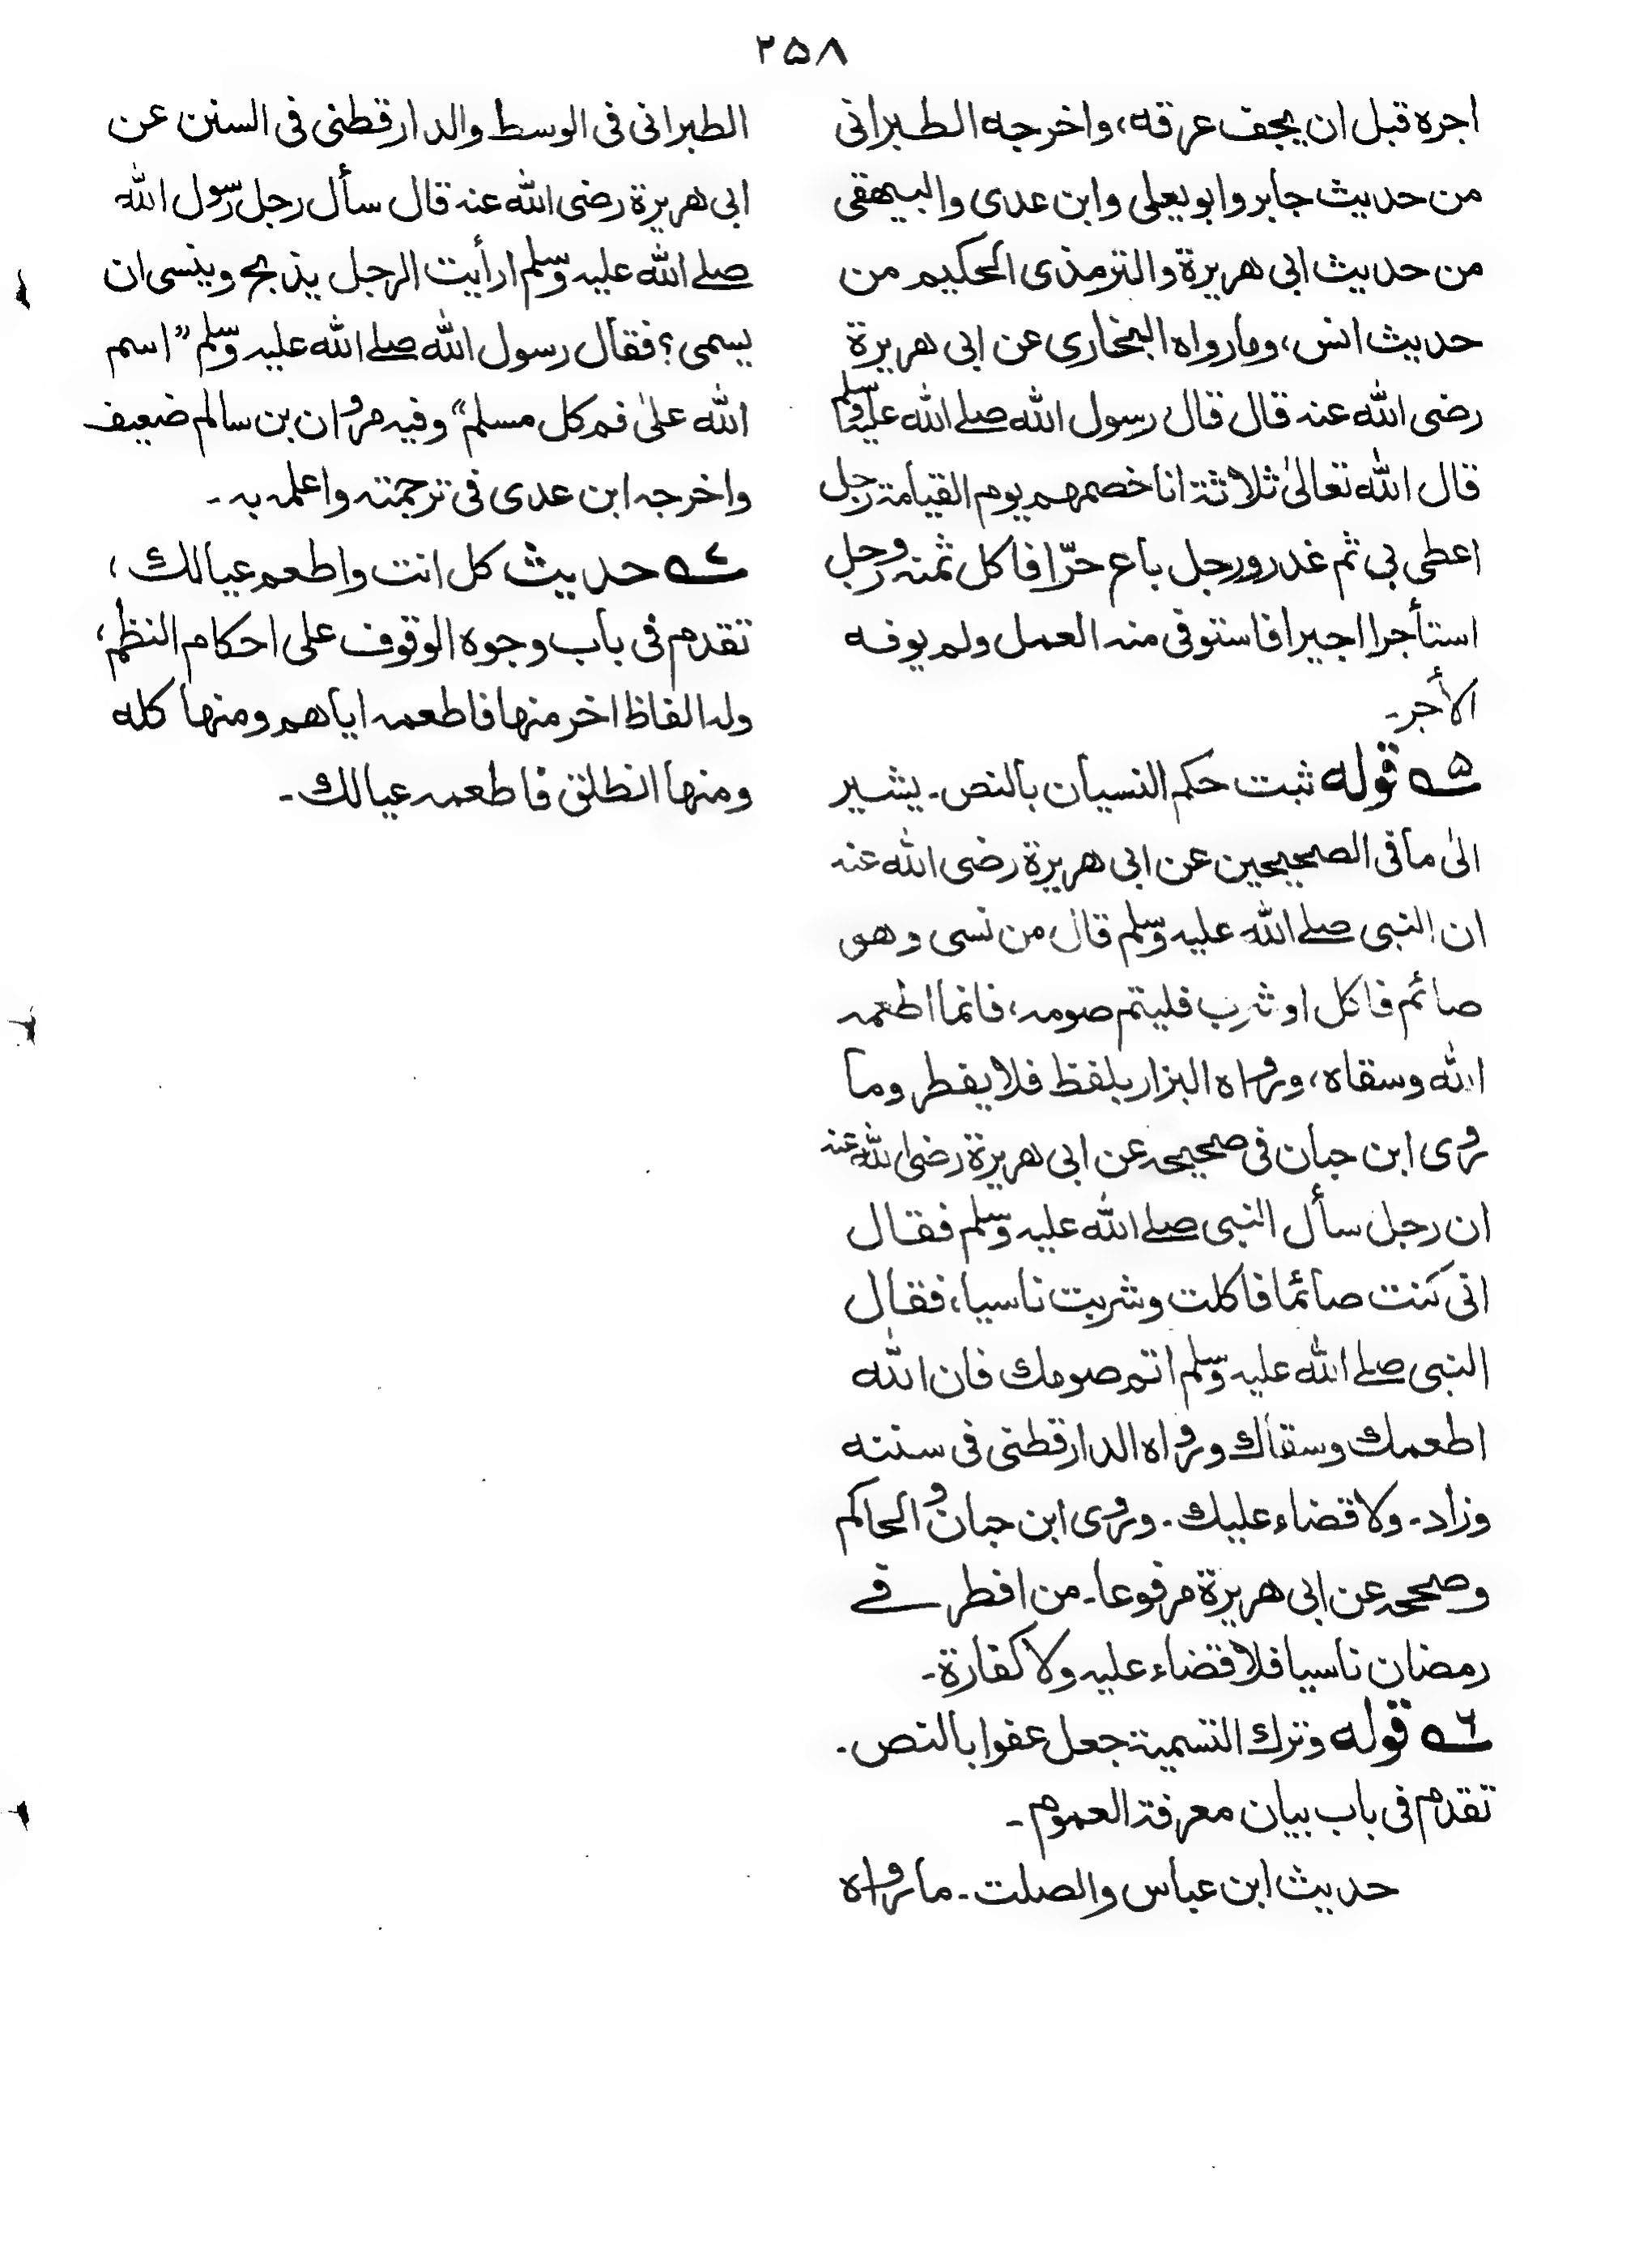 ۲۵۸
اجره قبل ان يجف عرقه، واخرجه الطبرانى
من حديث جابر وابو يعلى وابن عدى والبيهقى
من حديث ابى هريرة والترمذى الحكيم من
حديث انس، وما رواه البخارى عن ابى هريرة
رضى الله عنه قال قال رسول الله صلے الله عليه وسلم
قال الله تعالىٰ ثلاثة انا خصمهم يوم القيامة رجل
اعطى بى ثم غدر ورجل باع حرّا فاكل ثمنه ورجل
استأجرا اجيرا فاستوفى منه العمل ولم يوفه
الأجر۔
۵ قوله ثبت حكم النسيان بالنص۔ يشير
الىٰ ما فى الصحيحين عن ابى هريرة رضى الله عنه
ان النبى صلے الله عليه وسلم قال من نسى وهو
صائم فاكل او شرب فليتم صومه، فانما اطعمه
الله وسقاه، ورواه البزار بلفظ فلا يفطر وما
روى ابن حبان فى صحيحه عن ابى هريرة رضى الله عنه
ان رجل سأل النبى صلے الله عليه وسلم فقال
انى كنت صائما فاكلت وشربت ناسيا، فقال
النبى صلے الله عليه وسلم اتم صومك فان الله
اطعمك وسقاك ورواه الدارقطنى فى سننه
وزاد۔ ولا قضاء عليك۔ وروى ابن حبان والحاكم
وصححه عن ابى هريرة مرفوعا۔ من افطر فے
رمضان ناسيا فلا قضاء عليه ولا كفارة۔
۶ قوله وترك التسمية جعل عفوا بالنص۔
تقدم فى باب بيان معرفة العموم۔
حديث ابن عباس والصلت۔ ما رواه
الطبرانى فى الوسط والدارقطنى فى السنن عن
ابى هريرة رضى الله عنه قال سأل رجل رسول الله
صلے الله عليه وسلم ارأيت الرجل يذبح وينسى ان
يسمى؟ فقال رسول الله صلے الله عليه وسلم "اسم
الله علىٰ فم كل مسلم" وفيه مروان بن سالم ضعيف
واخرجه ابن عدى فى ترجمته واعلمه به۔
۷ حديث كل انت واطعم عيالك،
تقدم فى باب وجوه الوقوف على احكام النظم،
وله الفاظ اخر منها فاطعمه اياهم ومنها كله
ومنها انطلق فاطعمه عيالك۔